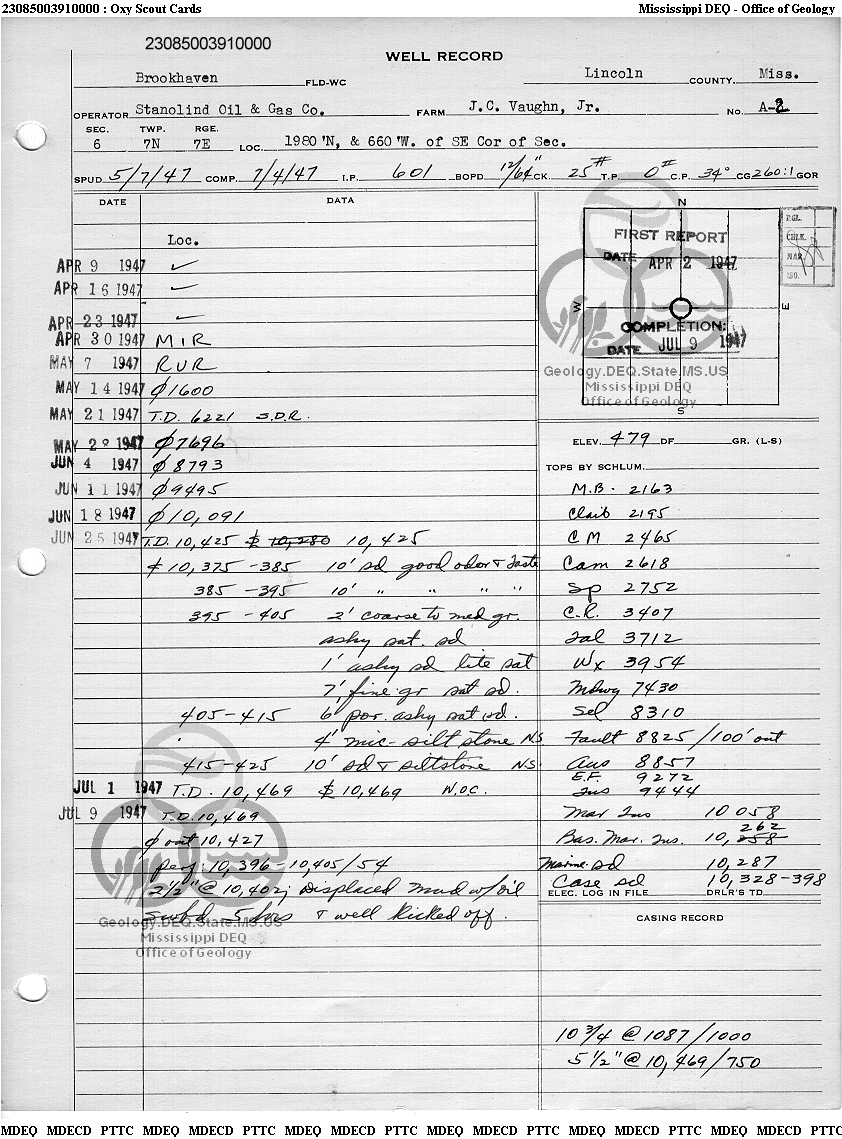 23085003910000 : Oxy Scout Cards Mississippi DEQ - Office of Geology
23085003910000
WELL RECORD
Brookhaven FLD-WC Lincoln COUNTY, Miss.
OPERATOR Stanolind Oil & Gas Co. FARM J.C. Vaughn, Jr. NO. A-2
SEC. TWP. RGE.
6 7N 7E LOC. 1980 'N, & 660 'W. of SE Cor of Sec.
SPUD 5/7/47 COMP. 7/4/47 I.P. 601 BOPD 12/64" CK. 25# T.P. 0# C.P. 34° CG 260:1 GOR
DATE DATA
Loc.
APR 9 1947 ✓
APR 16 1947 ✓
APR 23 1947 ✓
APR 30 1947 MIR
MAY 7 1947 RUR
MAY 14 1947 ϕ1600
MAY 21 1947 T.D. 6221 S.D.R.
MAY 28 1947 ϕ7696
JUN 4 1947 ϕ8793
JUN 11 1947 ϕ9495
JUN 18 1947 ϕ10,091
JUN 25 1947 T.D. 10,425 10,280 10,425
10,375 -385 10' sd good odor & taste
385 -395 10' " " " "
395 -405 2' coarse to med gr.
ashy sat. sd
1' ashy sd lite sat
7' fine gr sat sd.
405-415 6' por. ashy sat sd.
4' mic- siltstone N.S.
415-425 10' sd & siltstone N.S.
JUL 1 1947 T.D. 10,469 10,469 W.O.C.
JUL 9 1947 T.D. 10,469
ϕ out 10,427
perf. 10,396-10,405/54
2½" @ 10,402; Displaced mud w/oil
Swbd 5 hrs & well kicked off.
N
W
E
S
FIRST REPORT
DATE APR 2 1947
COMPLETION:
DATE JUL 9 1947
P.GL.
CHLK.
MAP
ISO.
Geology.DEQ.State.MS.US
Mississippi DEQ
Office of Geology
ELEV. 479 DF GR. (L-S)
TOPS BY SCHLUM.
M.B. 2163
Claib 2195
CM 2465
Cam 2618
Sp 2752
C.R. 3407
Tal 3712
Wx 3954
Mdwy 7430
Sel 8310
Fault 8825/100' out
Aus 8857
E.F. 9272
Tus 9444
Mar Tus 10058
262
Bas. Mar. Tus. 10,258
Marine sd 10,287
Case sd 10,328-398
ELEC. LOG IN FILE DRLR'S TD
CASING RECORD
10 3/4 @ 1087/1000
5 1/2" @ 10,469/750
Geology.DEQ.State.MS.US
Mississippi DEQ
Office of Geology
MDEQ MDECD PTTC MDEQ MDECD PTTC MDEQ MDECD PTTC MDEQ MDECD PTTC MDEQ MDECD PTTC MDEQ MDECD PTTC